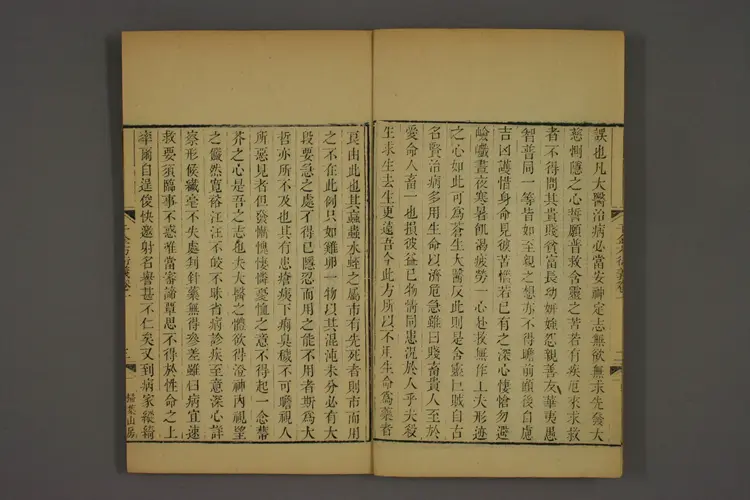 誤也凡大醫治病必當安神定志無欲無求先發大
慈惻隱之心誓願普救含靈之苦若有疾厄來求救
者不得問其貴賤貧富長幼妍媸怨親善友華夷愚
智普同一等皆如至親之想亦不得瞻前顧後自慮
吉凶護惜身命見彼苦惱若己有之深心悽愴勿避
嶮巇晝夜寒暑飢渴疲勞一心赴救無作工夫形迹
之心如此可為蒼生大醫反此則是含靈巨賊自古
名賢治病多用生命以濟危急雖曰賤畜貴人至於
愛命人畜一也損彼益己物情同患況於人乎夫殺
生求生去生更遠吾今此方所以不用生命為藥者
良由此也其蝱蟲水蛭之屬市有先死者則市而用
之不在此例只如雞卵一物以其混沌未分必有大
段要急之處不得已隱忍而用之能不用者斯為大
哲亦所不及也其有患瘡痍下痢臭穢不可瞻視人
所惡見者但發慚愧悽憐憂恤之意不得起一念蔕
芥之心是吾之志也夫大醫之體欲得澄神內視望
之儼然寬裕汪汪不皎不昧省病診疾至意深心詳
察形候纖毫不失處判針藥無得參差雖曰病宜速
救要須臨事不惑唯當審諦覃思不得於性命之上
率爾自逞俊快邀射名譽甚不仁矣又到病家縱綺
掃葉山房